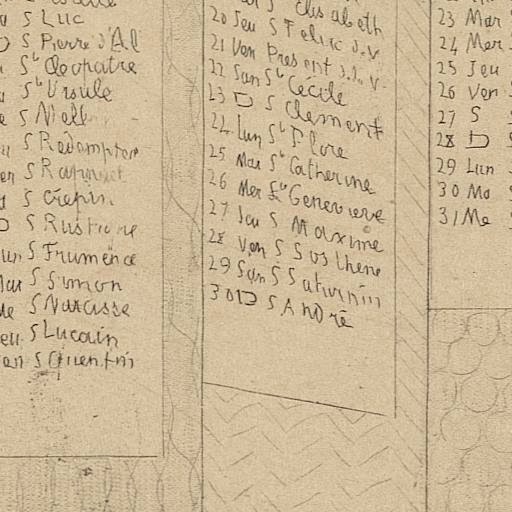 S Luc
S Pierre d'Al
Ste Cleopatre
Ste Ursule
S
S Redempteur
S
S Crepin
S Rustique
S Frumence
S Simon
S Narcisse
S Lucain
S Quentin
S Elisabeth
20 Jeu S Felix d.v
21 Ven Present d.l.v.
22 Sam Ste Cécile
23 D S Clement
24 Lun Ste Flore
25 Mar Ste Catherine
26 Mer Ste Genevieve
27 Jeu S Maxime
28 Ven S Sosthene
29 Sam S Saturnin
30 D S André
23 Mar
24 Mer
25 Jeu
26 Ven
27 S
28 D
29 Lun
30 Ma
31 Me